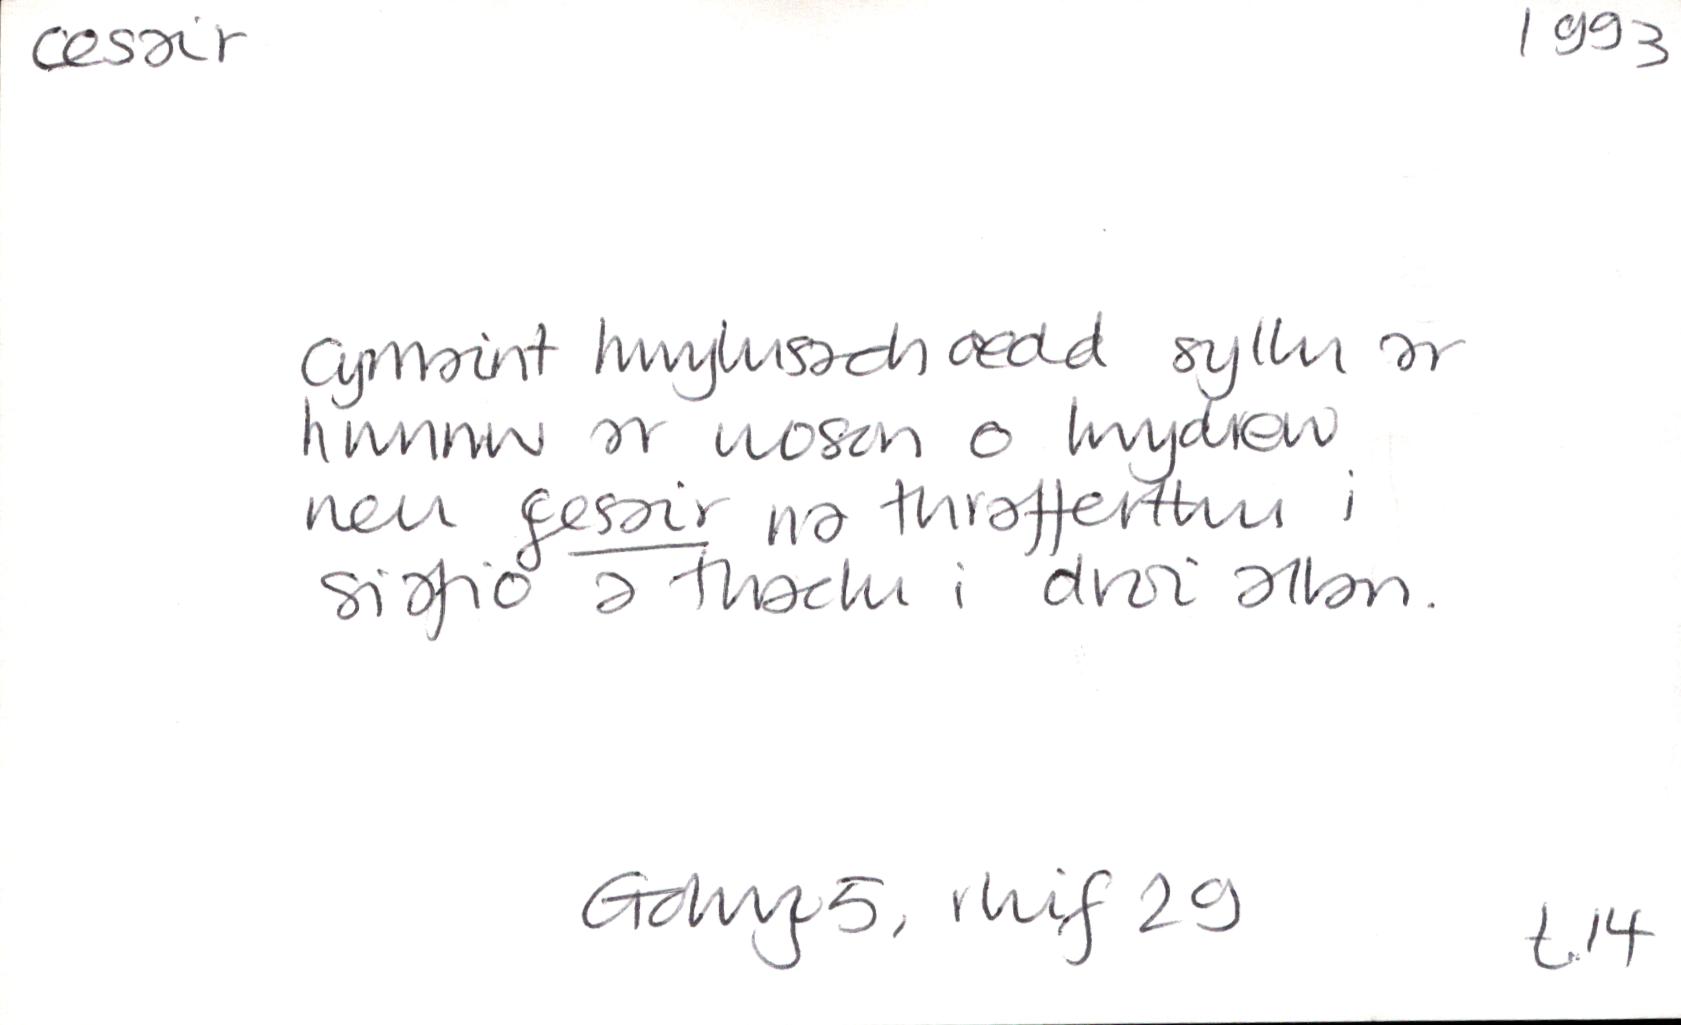 cesair 1993
cymaint hwylusach oedd syllu ar
hwnnw ar noson o lwydrew
neu gesair na thrafferthu i
siafio a thaclu i droi allan.
Golwg 5, rhif 29 t.14